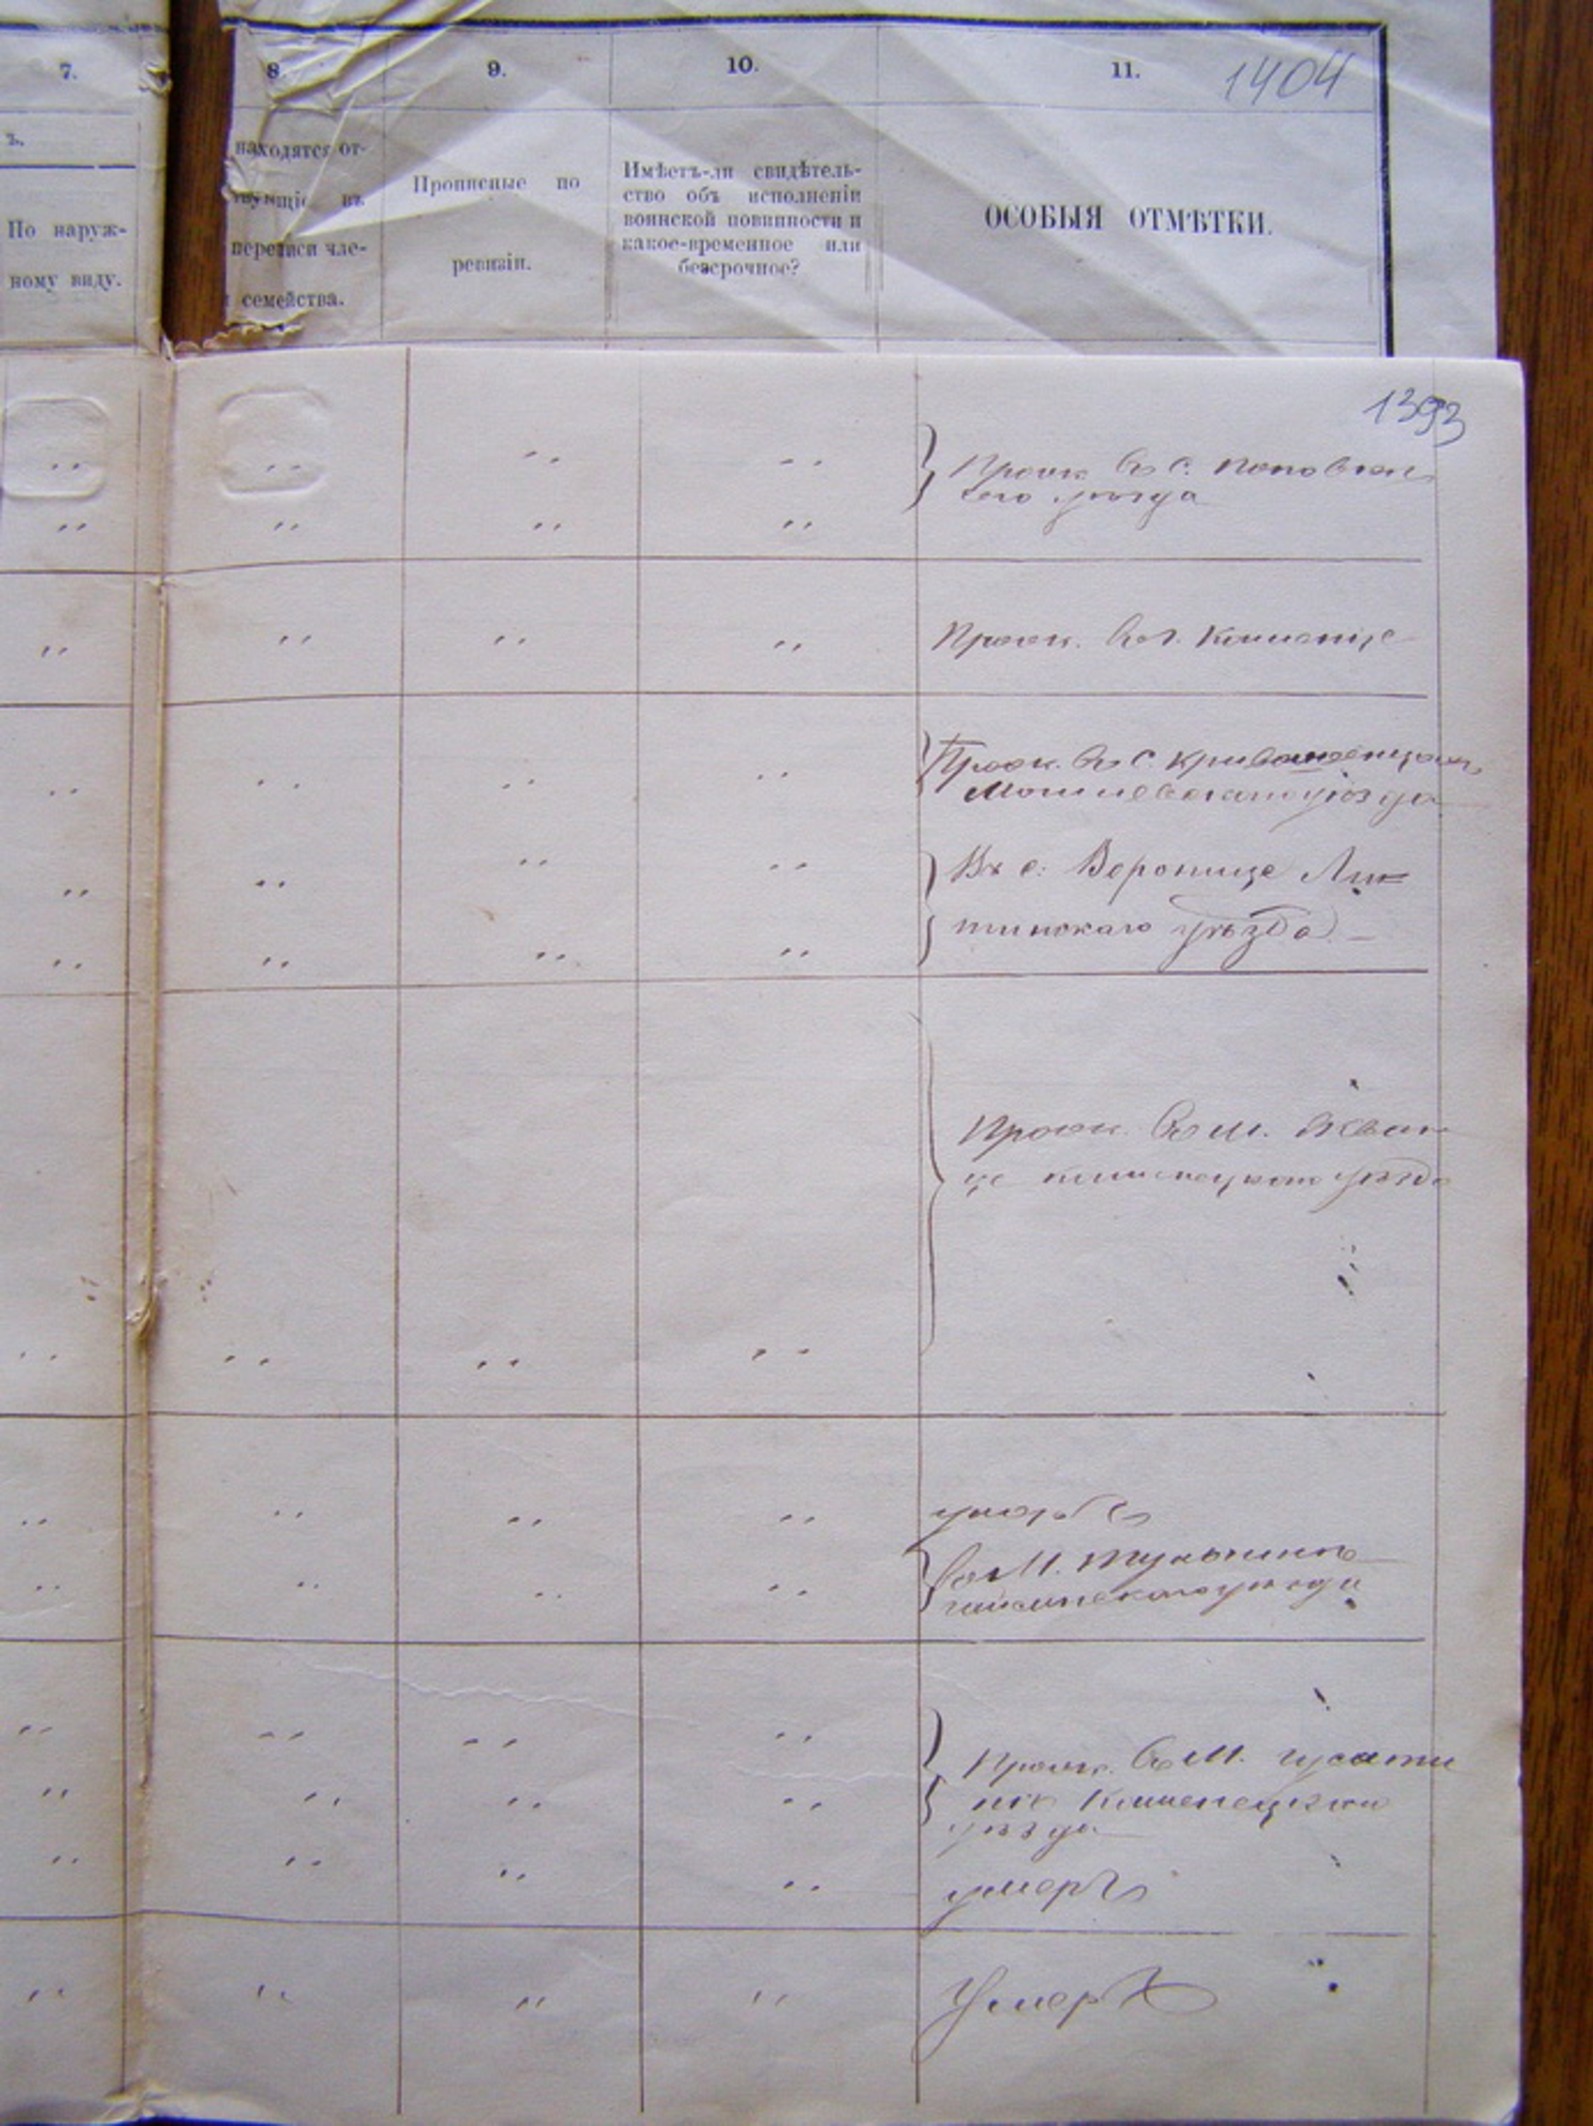 7.
8.
9.
10.
11.
1404
ъ.
По наруж-
ному виду.
находятся от-
вующіе въ
переписи чле-
семейства.
Прописные по
ревизіи.
Имѣетъ-ли свидѣтель-
ство объ исполненіи
воинской повинности и
какое-временное или
безсрочное?
ОСОБЫЯ ОТМѢТКИ.
1393
Прожив. въ с.
уѣзда
Прожив. въ г. Каменцѣ
Прожив. въ с. Кривошеинцахъ
уѣзда
Въ с: Воронице Ли-
тинскаго уѣзда
Прожив. въ м. Жван-
це каменецкаго уѣзда
умеръ
въ М.
гайсинскаго уѣзда
Прожив. въ М. гусяти-
нѣ Каменецкаго
уѣзда
умеръ
Умеръ